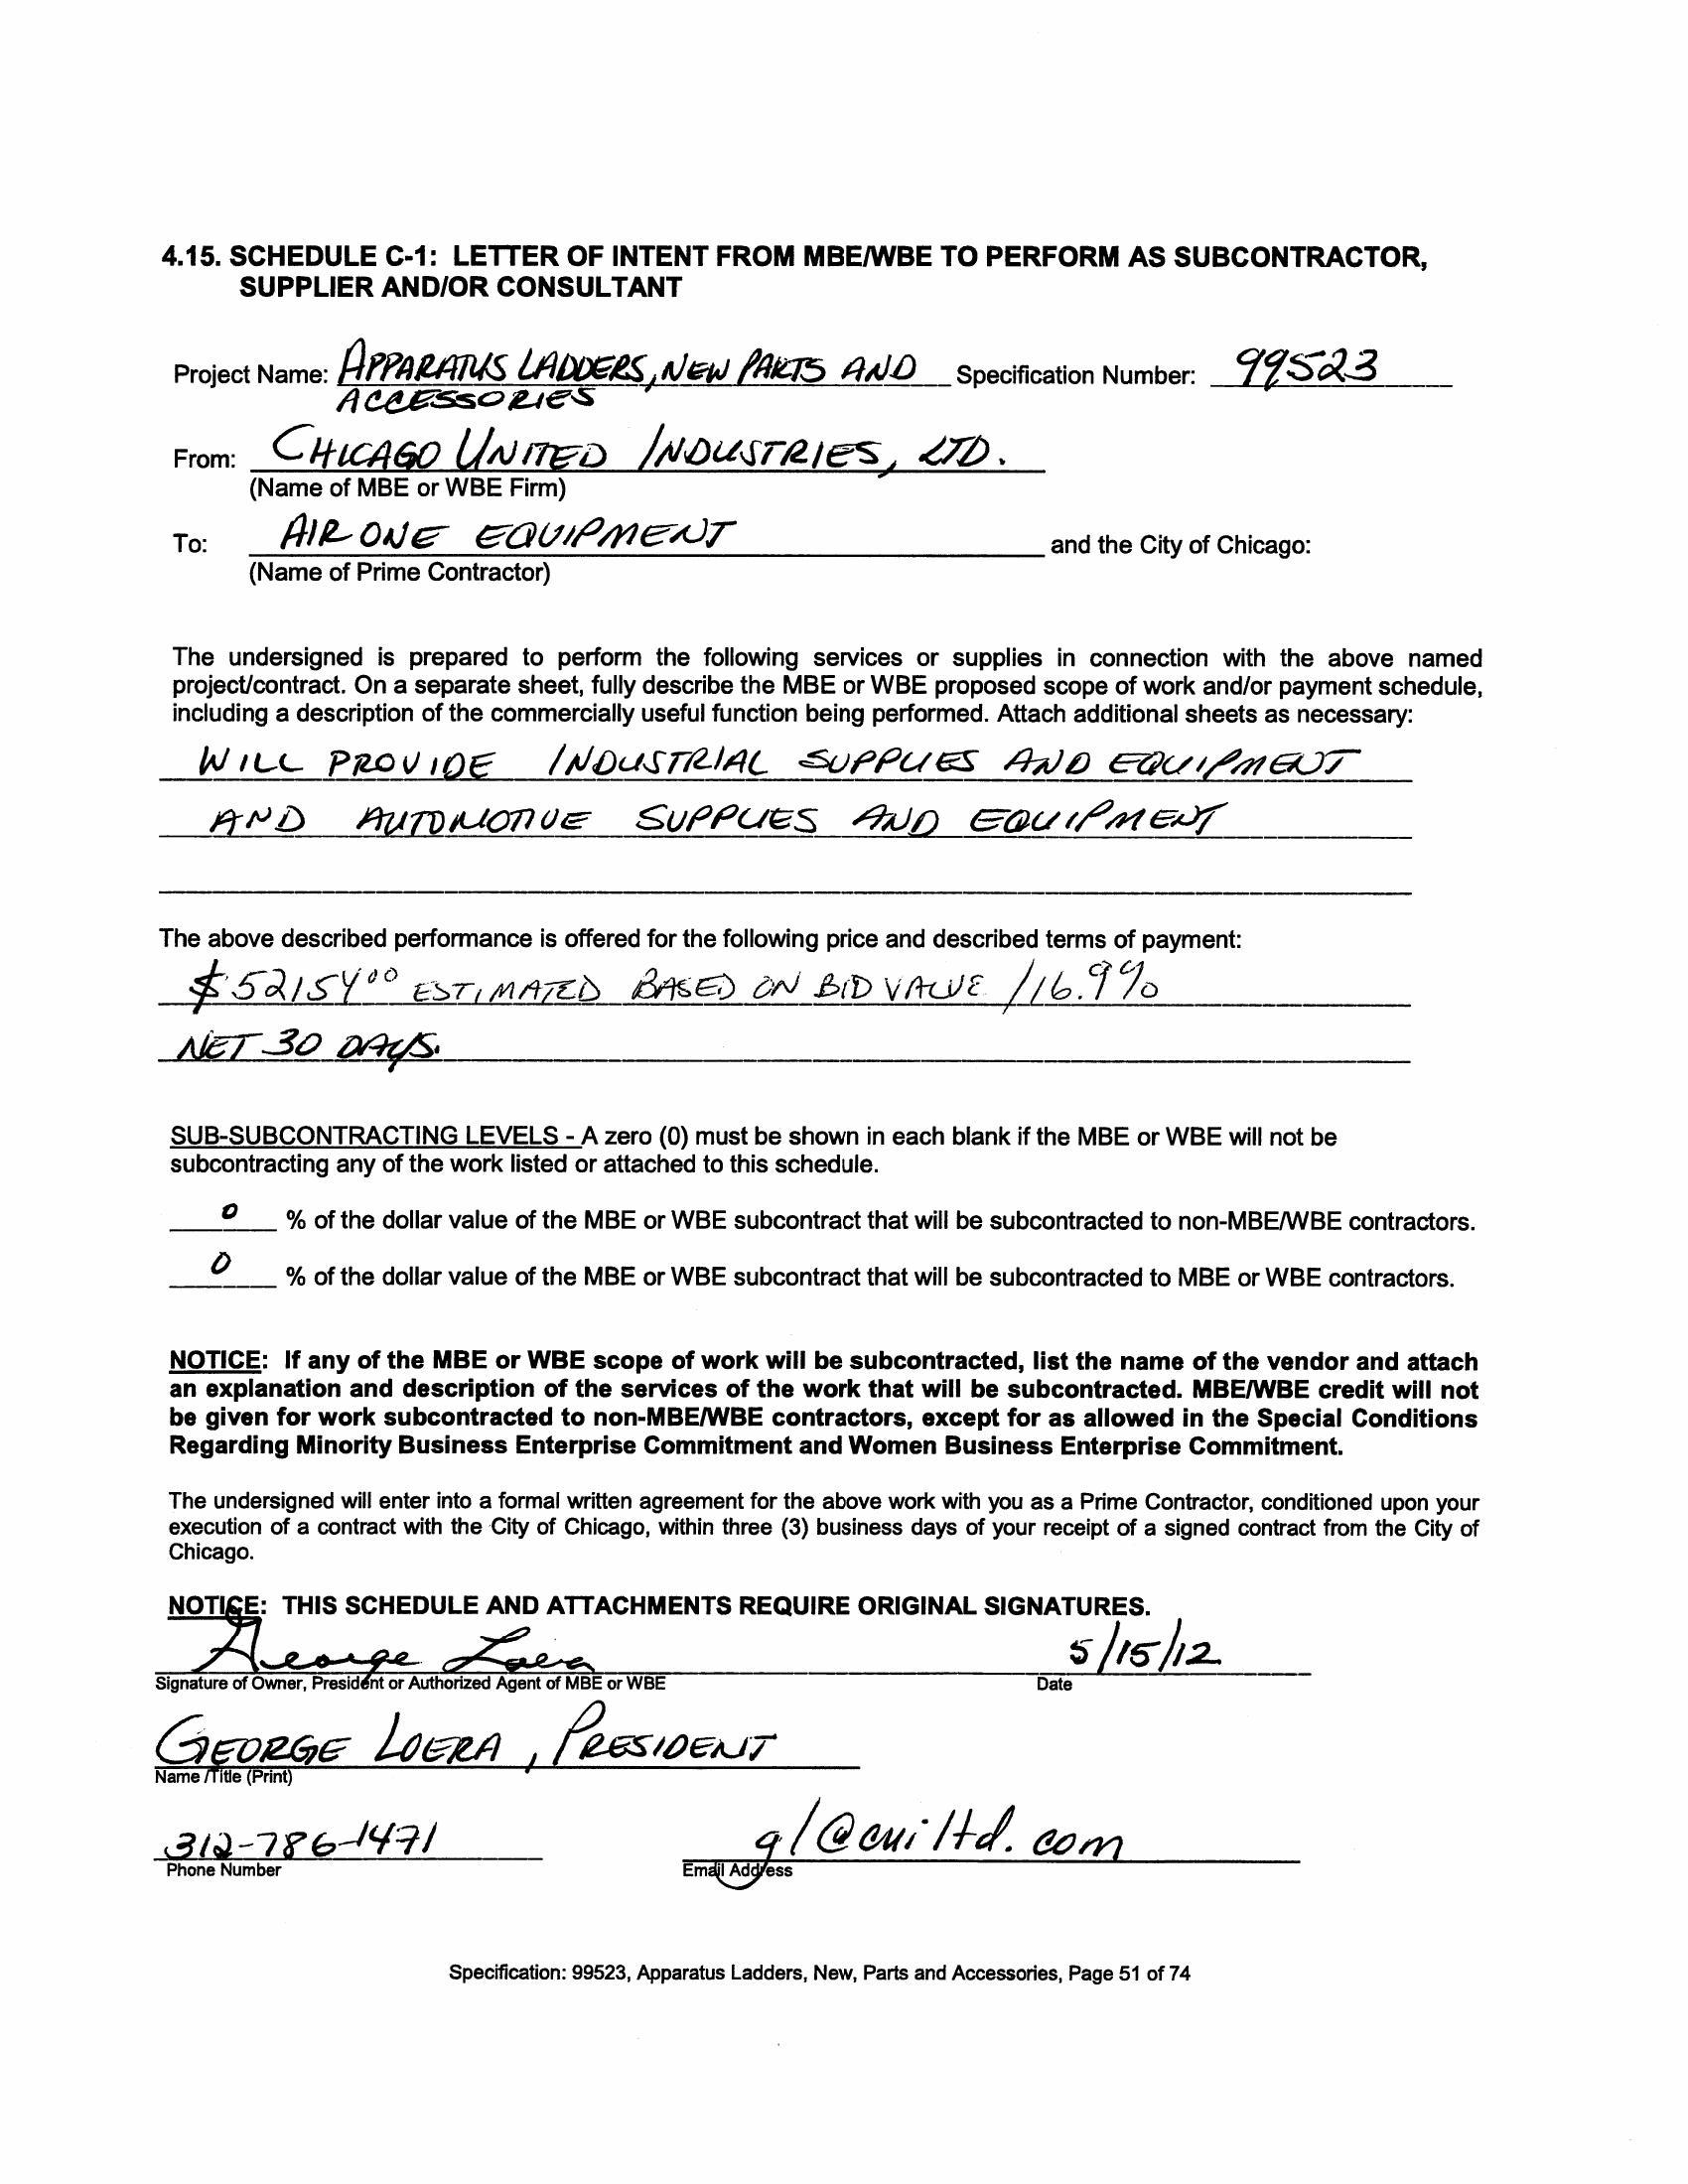 4.15. SCHEDULE C-1: LETTER OF INTENT FROM MBE/WBE TO PERFORM AS SUBCONTRACTOR,
SUPPLIER AND/OR CONSULTANT
Project Name: APPARATUS LADDERS, NEW PARTS AND Specification Number: 99523
ACCESSORIES
From: CHICAGO UNITED INDUSTRIES, LTD.
(Name of MBE or WBE Firm)
To: AIR ONE EQUIPMENT and the City of Chicago:
(Name of Prime Contractor)
The undersigned is prepared to perform the following services or supplies in connection with the above named
project/contract. On a separate sheet, fully describe the MBE or WBE proposed scope of work and/or payment schedule,
including a description of the commercially useful function being performed. Attach additional sheets as necessary:
WILL PROVIDE INDUSTRIAL SUPPLIES AND EQUIPMENT
AND AUTOMOTIVE SUPPLIES AND EQUIPMENT
The above described performance is offered for the following price and described terms of payment:
$52154⁰⁰ ESTIMATED BASED ON BID VALUE /16.9%
NET 30 DAYS.
SUB-SUBCONTRACTING LEVELS - A zero (0) must be shown in each blank if the MBE or WBE will not be
subcontracting any of the work listed or attached to this schedule.
0 % of the dollar value of the MBE or WBE subcontract that will be subcontracted to non-MBE/WBE contractors.
0 % of the dollar value of the MBE or WBE subcontract that will be subcontracted to MBE or WBE contractors.
NOTICE: If any of the MBE or WBE scope of work will be subcontracted, list the name of the vendor and attach
an explanation and description of the services of the work that will be subcontracted. MBE/WBE credit will not
be given for work subcontracted to non-MBE/WBE contractors, except for as allowed in the Special Conditions
Regarding Minority Business Enterprise Commitment and Women Business Enterprise Commitment.
The undersigned will enter into a formal written agreement for the above work with you as a Prime Contractor, conditioned upon your
execution of a contract with the City of Chicago, within three (3) business days of your receipt of a signed contract from the City of
Chicago.
NOTICE: THIS SCHEDULE AND ATTACHMENTS REQUIRE ORIGINAL SIGNATURES.
George Loera 5/15/12
Signature of Owner, President or Authorized Agent of MBE or WBE Date
GEORGE LOERA, PRESIDENT
Name /Title (Print)
312-786-1471 gl@cuiltd.com
Phone Number Email Address
Specification: 99523, Apparatus Ladders, New, Parts and Accessories, Page 51 of 74